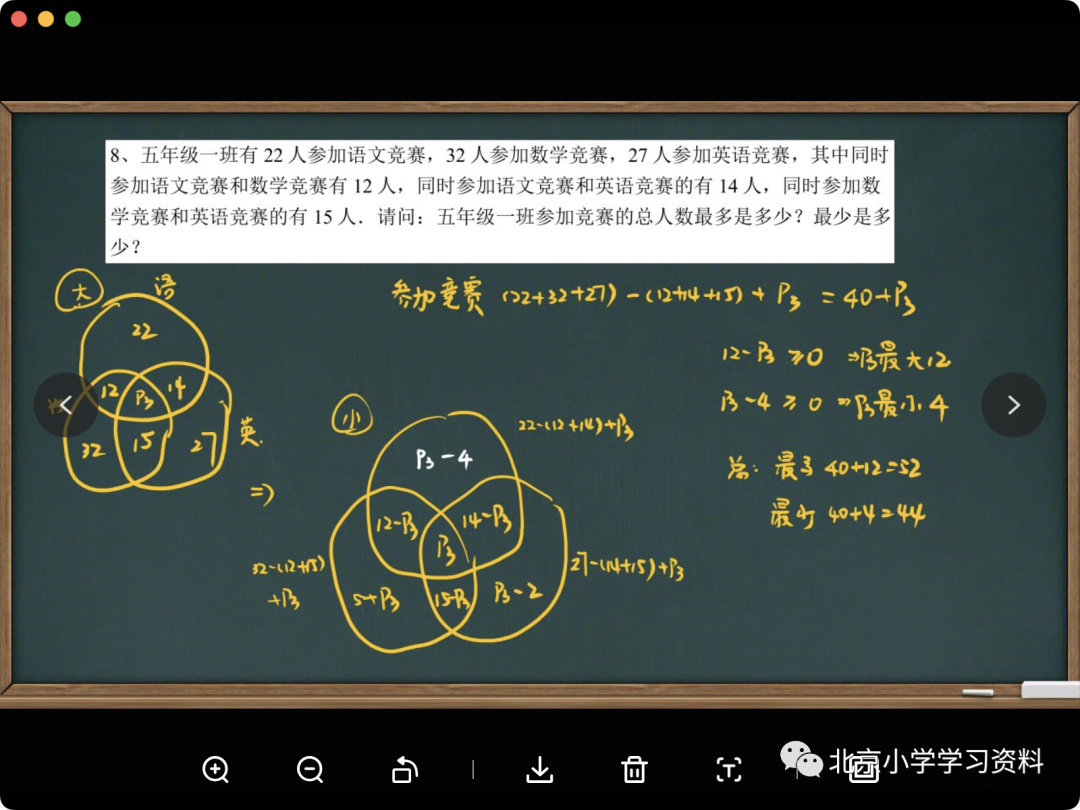 8、五年级一班有 22 人参加语文竞赛，32 人参加数学竞赛，27 人参加英语竞赛，其中同时
参加语文竞赛和数学竞赛有 12 人，同时参加语文竞赛和英语竞赛的有 14 人，同时参加数
学竞赛和英语竞赛的有 15 人．请问：五年级一班参加竞赛的总人数最多是多少？最少是多
少？
大
语
22
12 P₃ 14
32 15 27
英.
=>
参加竞赛 (22+32+27)-(12+14+15)+P₃ =40+P₃
12-P₃ ≥0 ⇒P₃最大12
P₃-4 ≥0 ⇒P₃最小4
总: 最多 40+12=52
最少 40+4=44
小
22-(12+14)+P₃
P₃-4
12-P₃ 14-P₃
P₃
32-(12+15)
+P₃
5+P₃ 15-P₃ P₃-2
27-(14+15)+P₃
北京小学学习资料